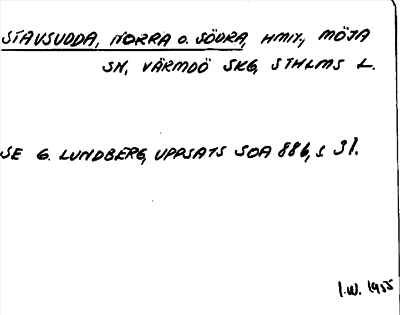 STAVSUDDA, NORRA O. SÖDRA, HMN, MÖJA
SN, VÄRMDÖ SKG, STHLMS L.
SE G. LUNDBERG, UPPSATS SOA 886, S 31.
I.W. 1955